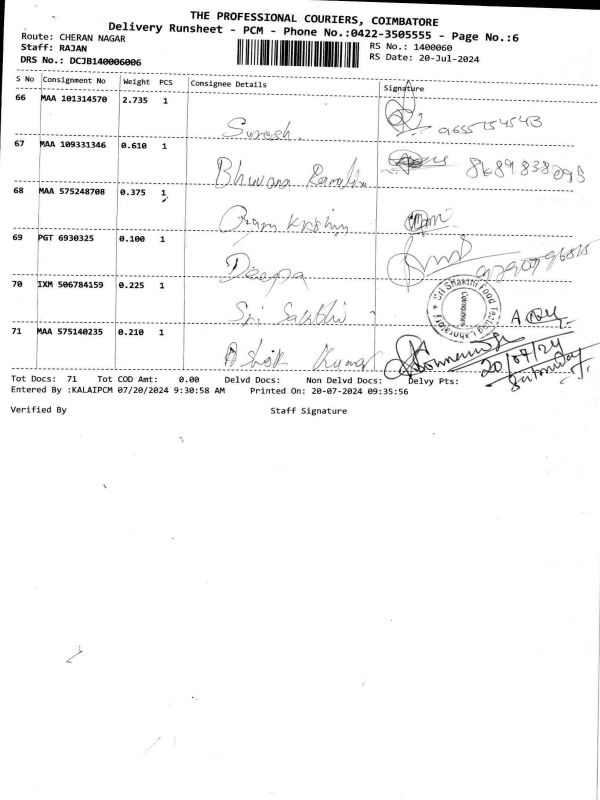 THE PROFESSIONAL COURIERS, COIMBATORE
Delivery Runsheet - PCM - Phone No.:0422-3505555 - Page No.:6
Route: CHERAN NAGAR
Staff: RAJAN
DRS No.: DCJB140006006
RS No.: 1400060
RS Date: 20-Jul-2024
S No Consignment No Weight PCS Consignee Details Signature
66 MAA 101314570 2.735 1
Suresh. 9655754543
67 MAA 109331346 0.610 1
Bhuvana 8689838095
68 MAA 575248708 0.375 1
Ram
69 PGT 6930325 0.100 1
Deepa
70 IXM 506784159 0.225 1
Sri Sakthi
Sri Shakthi Food Testing Laboratory
Coimbatore
71 MAA 575140235 0.210 1
Ashok Kumar
20/07/24
Saturday
Tot Docs: 71 Tot COD Amt: 0.00 Delvd Docs: Non Delvd Docs: Delvy Pts:
Entered By :KALAIPCM 07/20/2024 9:30:58 AM Printed On: 20-07-2024 09:35:56
Verified By Staff Signature